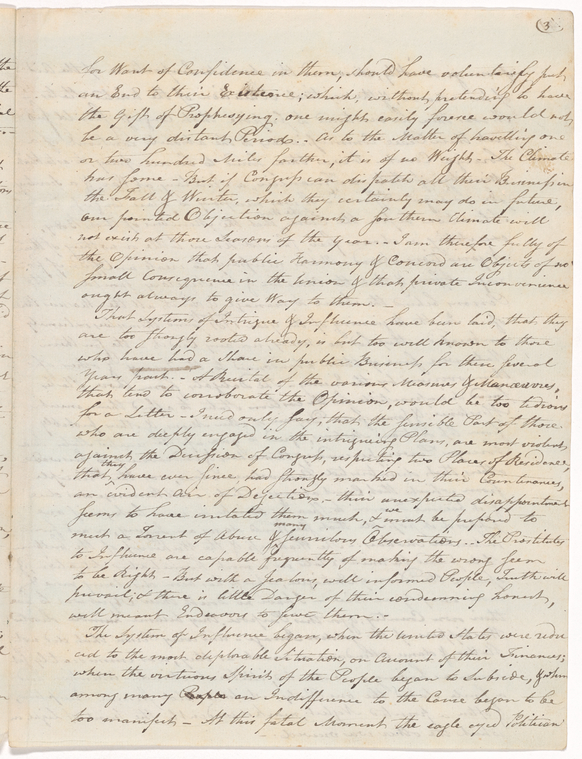 3
for Want of Confidence in them, should have voluntarily put
an End to their Existence; which, without pretending to have
the Gift of Prophesying, one might easily foresee would not
be a very distant Period.. As to the Matter of travelling one
or two hundred Miles farther, it is of no Weight - The Climate
has some - But if Congress can dispatch all their Business in
the Fall & Winter, which they certainly may do in future,
our pointed Objection against a southern Climate will
not exist at those Seasons of the Year.. - I am therefore fully of
the Opinion that public Harmony & Concord are Objects of no
small Consequence in the Union & that private Inconvenience
ought always to give Way to them. -
That Systems of Intrigue & Influence have been laid, that they
are too strongly rooted already, is but too well known to those
who have had a Share in public Business for these several
Years past - A Recital of the various Measures & Manœuvres,
that tend to corroborate the Opinion, would be too tedious
for a Letter - I need only say, that the sensible Part of those
who are deeply engaged in the intriguing Plans, are most violent
against the Decision of Congress, respecting two Places of Residence,
that they have ever since had strongly marked in their Countenances,
an evident Air of Dejection. - their unexpected disappointment
seems to have irritated them much, & we must be prepared to
meet a Torrent of Abuse & many scurrilous Observations.. The Prostitutes
to Influence are capable frequently of making the wrong seem
to be Right - But with a jealous, well informed People, Truth will
prevail; & there is little Danger of their condemning honest,
well meant Endeavors to serve them. -
The System of Influence began, when the United States were redu
ced to the most deplorable Situation, on Account of their Finances;
when the virtuous Spirit of the People began to subside, & when
among many an Indifference to the Cause began to be
too manifest - At this fatal Moment the eagle eyed Politician